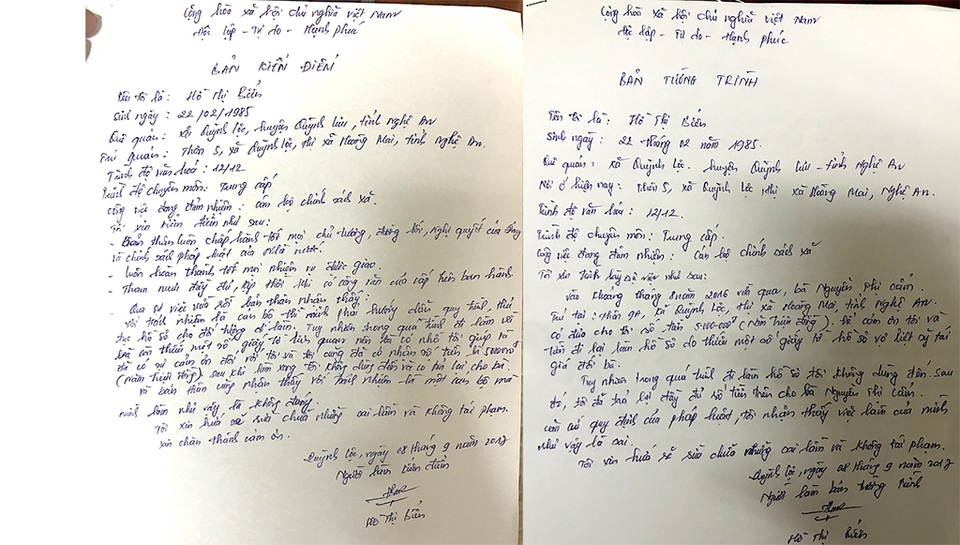 Cộng hòa xã hội chủ nghĩa Việt Nam
Độc lập - Tự do - Hạnh phúc
BẢN KIỂM ĐIỂM
Tên tôi là: Hồ Thị Biển
Sinh ngày: 22/02/1985
Quê quán: xã Quỳnh Lộc, huyện Quỳnh Lưu, tỉnh Nghệ An
Trú quán: Thôn 5, xã Quỳnh Lộc, Thị xã Hoàng Mai, tỉnh Nghệ An.
Trình độ văn hoá: 12/12
Trình độ chuyên môn: Trung cấp
Công việc đang đảm nhiệm: cán bộ chính sách xã.
Tôi xin kiểm điểm như sau:
- Bản thân luôn chấp hành tốt mọi chủ trương, đường lối, nghị quyết của Đảng
và chính sách pháp luật của nhà nước.
- Luôn hoàn thành tốt mọi nhiệm vụ được giao.
- Tham mưu đầy đủ, kịp thời khi có công văn của cấp trên ban hành
Qua sự việc vừa rồi bản thân nhận thấy:
Với trách nhiệm là cán bộ thì mình phải hướng dẫn quy trình, thủ
tục hồ sơ cho đối tượng đi làm. Tuy nhiên trong quá trình đi làm với
bà còn thiếu một số giấy tờ liên quan nên bà có nhờ tôi giúp và
đã có sự cảm ơn đối với tôi và tôi cũng đã có nhận số tiền là 5000.000đ
(năm triệu đồng) sau khi làm xong tôi không đúng đến và có trả lại cho bà.
Và bản thân cũng nhận thấy với trách nhiệm là một cán bộ mà
mình làm như vậy là không đúng.
Tôi xin hứa sẽ sửa chữa những sai lầm và không tái phạm.
Xin chân thành cảm ơn.
Quỳnh Lộc, ngày 08 tháng 9 năm 2017
Người làm kiểm điểm
Hồ Thị Biển
Cộng hòa xã hội chủ nghĩa Việt Nam
Độc lập - Tự do - Hạnh phúc
BẢN TƯỜNG TRÌNH
Tên tôi là: Hồ Thị Biển
Sinh ngày: 22 tháng 02 năm 1985.
Quê quán: xã Quỳnh Lộc. huyện Quỳnh Lưu - tỉnh Nghệ An
Nơi ở hiện nay: Thôn 5, xã Quỳnh Lộc, Thị xã Hoàng Mai, Nghệ An.
Trình độ văn hóa: 12/12.
Trình độ chuyên môn: Trung cấp.
Công việc đang đảm nhiệm: Cán bộ chính sách xã
Tôi xin trình bày sự việc như sau:
Vào khoảng tháng 8 năm 2016 vừa qua, bà Nguyễn Phi Cầm.
Trú tại: Thôn 9A, xã Quỳnh Lộc, thị xã Hoàng Mai, tỉnh Nghệ An.
có đưa cho tôi số tiền 5000.000đ (năm triệu đồng). Để cảm ơn tôi và
tiền đi lại làm hồ sơ do thiếu một số giấy tờ hồ sơ vợ liệt sỹ tái
giá đối bà.
Tuy nhiên trong quá trình đi làm hồ sơ tôi không dùng đến. Sau
đó, tôi đã trả lại đầy đủ số tiền trên cho bà Nguyễn Phi Cầm.
Căn cứ quy định của pháp luật, tôi nhận thấy việc làm của mình
như vậy là sai.
Tôi xin hứa sẽ sửa chữa những sai lầm và không tái phạm.
Quỳnh Lộc, ngày 08 tháng 9 năm 2017
Người làm bản tường trình
Hồ Thị Biển